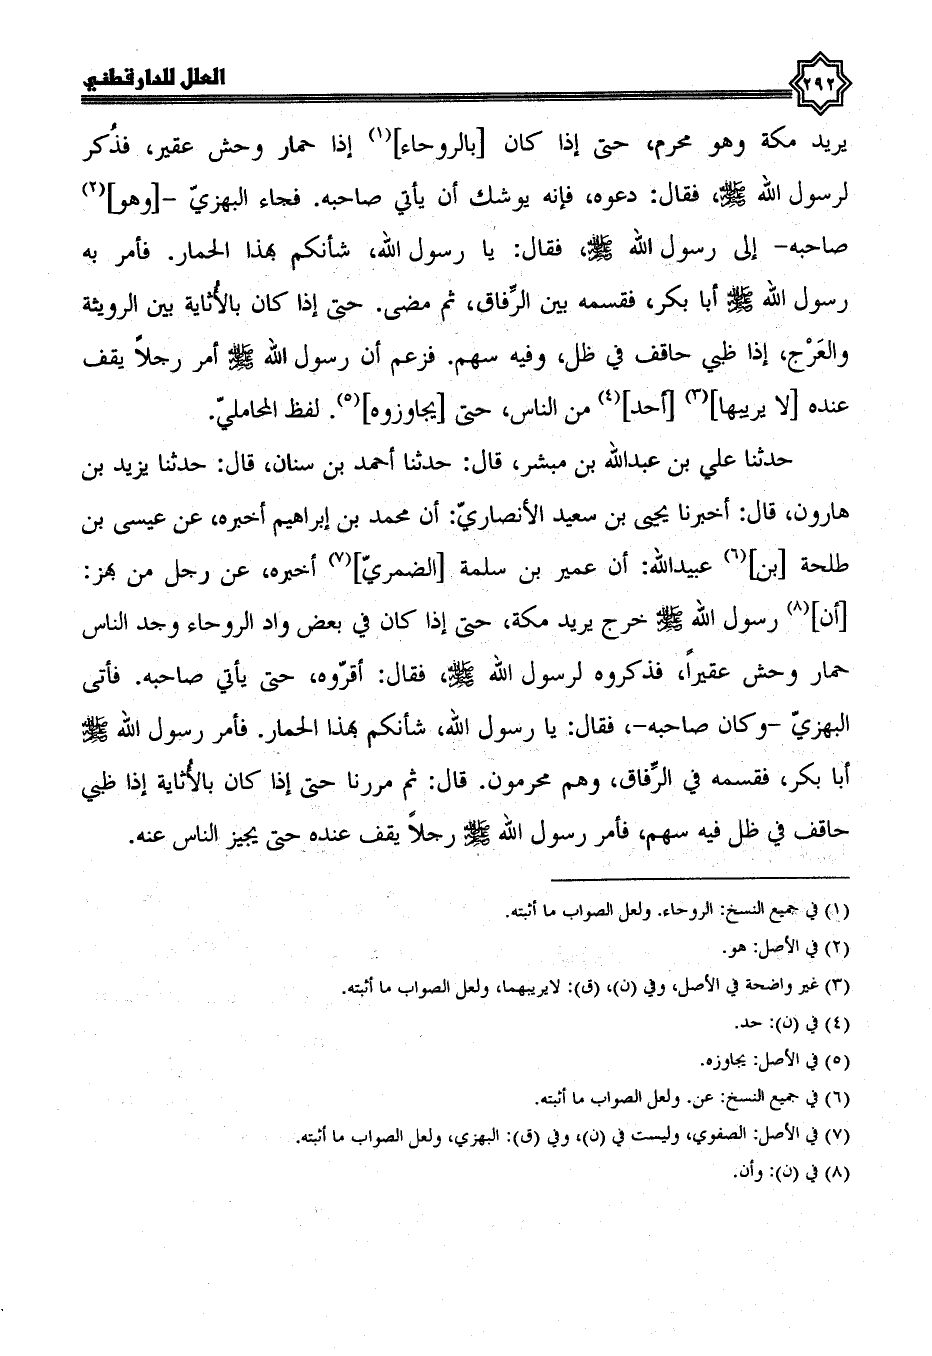 العلل للدارقطني
٢٩٢
يريد مكة وهو محرم، حتى إذا كان [بالروحاء](١) إذا حمار وحش عقير، فذُكر
لرسول الله ﷺ، فقال: دعوه، فإنه يوشك أن يأتي صاحبه. فجاء البهزيّ -[وهو](٢)
صاحبه- إلى رسول الله ﷺ، فقال: يا رسول الله، شأنكم بهذا الحمار. فأمر به
رسول الله ﷺ أبا بكر، فقسمه بين الرِّفاق، ثم مضى. حتى إذا كان بالأُثاية بين الرويثة
والعَرْج، إذا ظبي حاقف في ظل، وفيه سهم. فزعم أن رسول الله ﷺ أمر رجلاً يقف
عنده [لا يريبها](٣) [أحد](٤) من الناس، حتى [يجاوزوه](٥). لفظ المحامليّ.
حدثنا علي بن عبدالله بن مبشر، قال: حدثنا أحمد بن سنان، قال: حدثنا يزيد بن
هارون، قال: أخبرنا يحيى بن سعيد الأنصاريّ: أن محمد بن إبراهيم أخبره، عن عيسى بن
طلحة [بن](٦) عبيدالله: أن عمير بن سلمة [الضمريّ](٧) أخبره، عن رجل من بهز:
[أن](٨) رسول الله ﷺ خرج يريد مكة، حتى إذا كان في بعض واد الروحاء وجد الناس
حمار وحش عقيراً، فذكروه لرسول الله ﷺ، فقال: أقرّوه، حتى يأتي صاحبه. فأتى
البهزيّ -وكان صاحبه-، فقال: يا رسول الله، شأنكم بهذا الحمار. فأمر رسول الله ﷺ
أبا بكر، فقسمه في الرِّفاق، وهم محرمون. قال: ثم مررنا حتى إذا كان بالأُثاية إذا ظبي
حاقف في ظل فيه سهم، فأمر رسول الله ﷺ رجلاً يقف عنده حتى يجيز الناس عنه.
(١) في جميع النسخ: الروحاء. ولعل الصواب ما أثبته.
(٢) في الأصل: هو.
(٣) غير واضحة في الأصل، وفي (ن)، (ق): لايريبهما، ولعل الصواب ما أثبته.
(٤) في (ن): حد.
(٥) في الأصل: يجاوزه.
(٦) في جميع النسخ: عن. ولعل الصواب ما أثبته.
(٧) في الأصل: الصفوي، وليست في (ن)، وفي (ق): البهزي، ولعل الصواب ما أثبته.
(٨) في (ن): وأن.